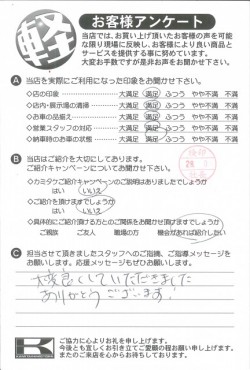 軽
お客様アンケート
当店では、お買い上げ頂いたお客様の声を可能
な限り現場に反映し、お客様により良い商品と
サービスを提供する事に努めています。
大変お手数ですが是非お声をお聞かせ下さい。
A 当店を実際にご利用になった印象をお聞かせ下さい。
◇店の印象 大満足 満足 ふつう やや不満 不満
◇店内・展示場の清掃 大満足 満足 ふつう やや不満 不満
◇お車の品揃え 大満足 満足 ふつう やや不満 不満
◇営業スタッフの対応 大満足 満足 ふつう やや不満 不満
◇納車時のお車の状態 大満足 満足 ふつう やや不満 不満
B 当店はご紹介を大切にしております。
ご紹介キャンペーンについてお聞かせ下さい。
◇カミタケご紹介キャンペーンのご説明はありましたでしょうか
はい いいえ
◇ご紹介を頂けますでしょうか
はい いいえ
◇具体的にご紹介頂ける方とのご関係をお聞かせ頂けますでしょうか
ご親族 ご友人 職場の方 機会があれば紹介したい
C 担当させて頂きましたスタッフへのご指摘、ご指導メッセージを
お願いします。応援メッセージもぜひお願いします。
大変良くしていただきました
ありがとうございます!
K
ご協力に心よりお礼を申し上げます。
今後とも宜しくお引き立てご愛顧の程お願い申し上げます。
またのご来店を心からお待ちしております。